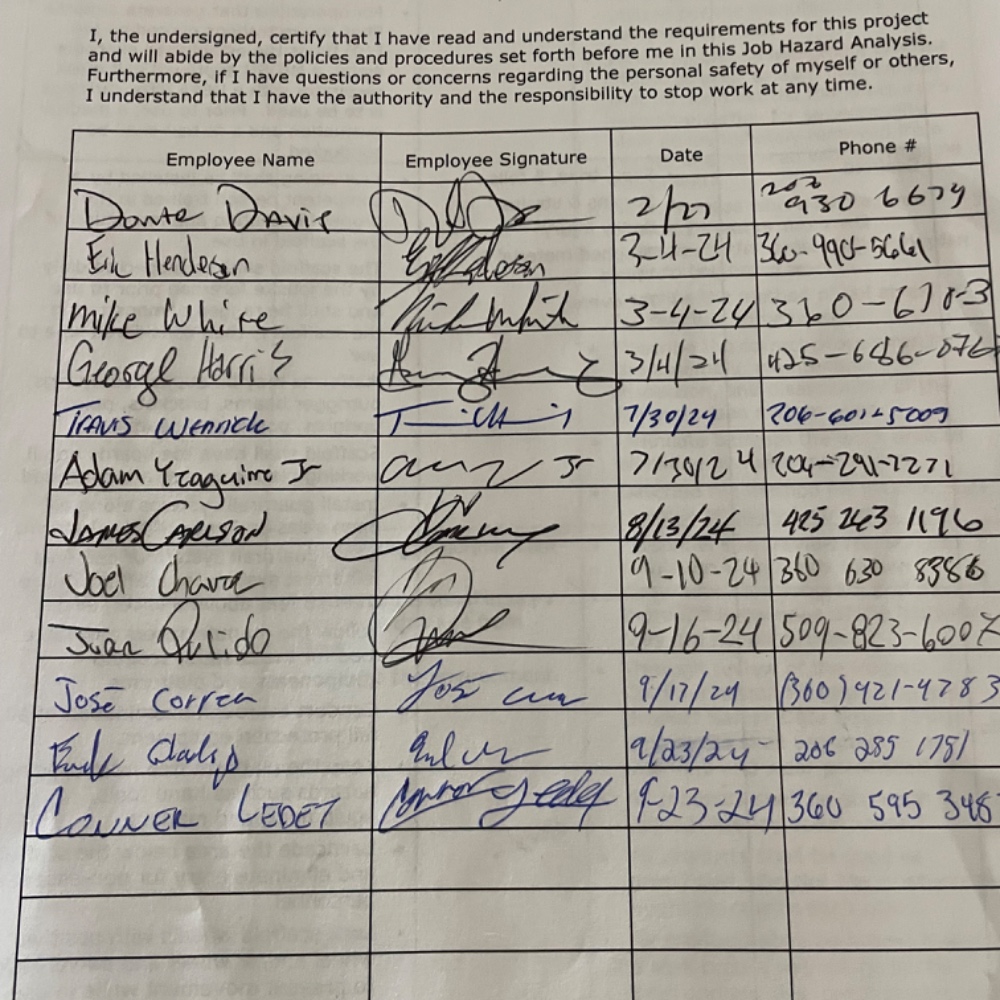 I, the undersigned, certify that I have read and understand the requirements for this project
and will abide by the policies and procedures set forth before me in this Job Hazard Analysis.
Furthermore, if I have questions or concerns regarding the personal safety of myself or others,
I understand that I have the authority and the responsibility to stop work at any time.
Employee Name Employee Signature Date Phone #
Donte Davis 930
Eric Henderson 3-4-24 360-990-5661
Mike White 3-4-24 360-
George Harris 3/4/24 425-686-076
Travis 7/30/24 206-601-5009
Adam Yzaguirre Jr Jr 7/30/24
James Carlson 8/13/24 425 263 1196
Joel 9-10-24 360 630 8386
Juan Pulido 9-16-24 509-823-6007
José Correa 9/17/24 (360) 421-4283
9/23/24 206 285 1751
Conner Ledet Conner Ledet 9-23-24 360 595 348